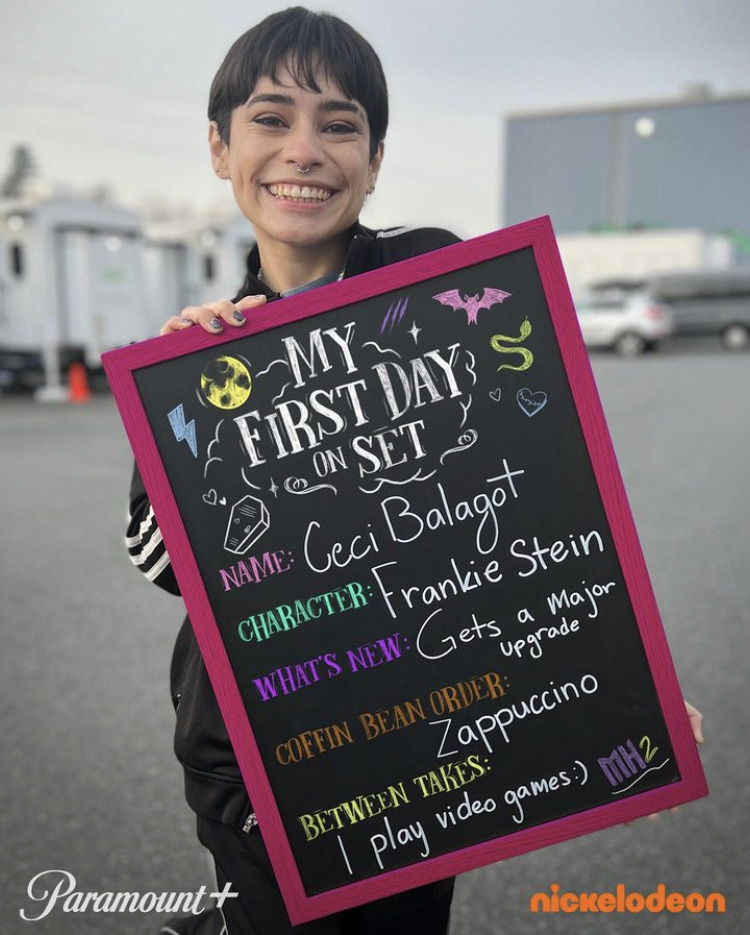 MY
FIRST DAY
ON SET
NAME: Ceci Balagot
CHARACTER: Frankie Stein
WHAT'S NEW: Gets a Major
upgrade
COFFIN BEAN ORDER:
Zappuccino
BETWEEN TAKES:
I play video games:)
MH2
Paramount+
nickelodeon